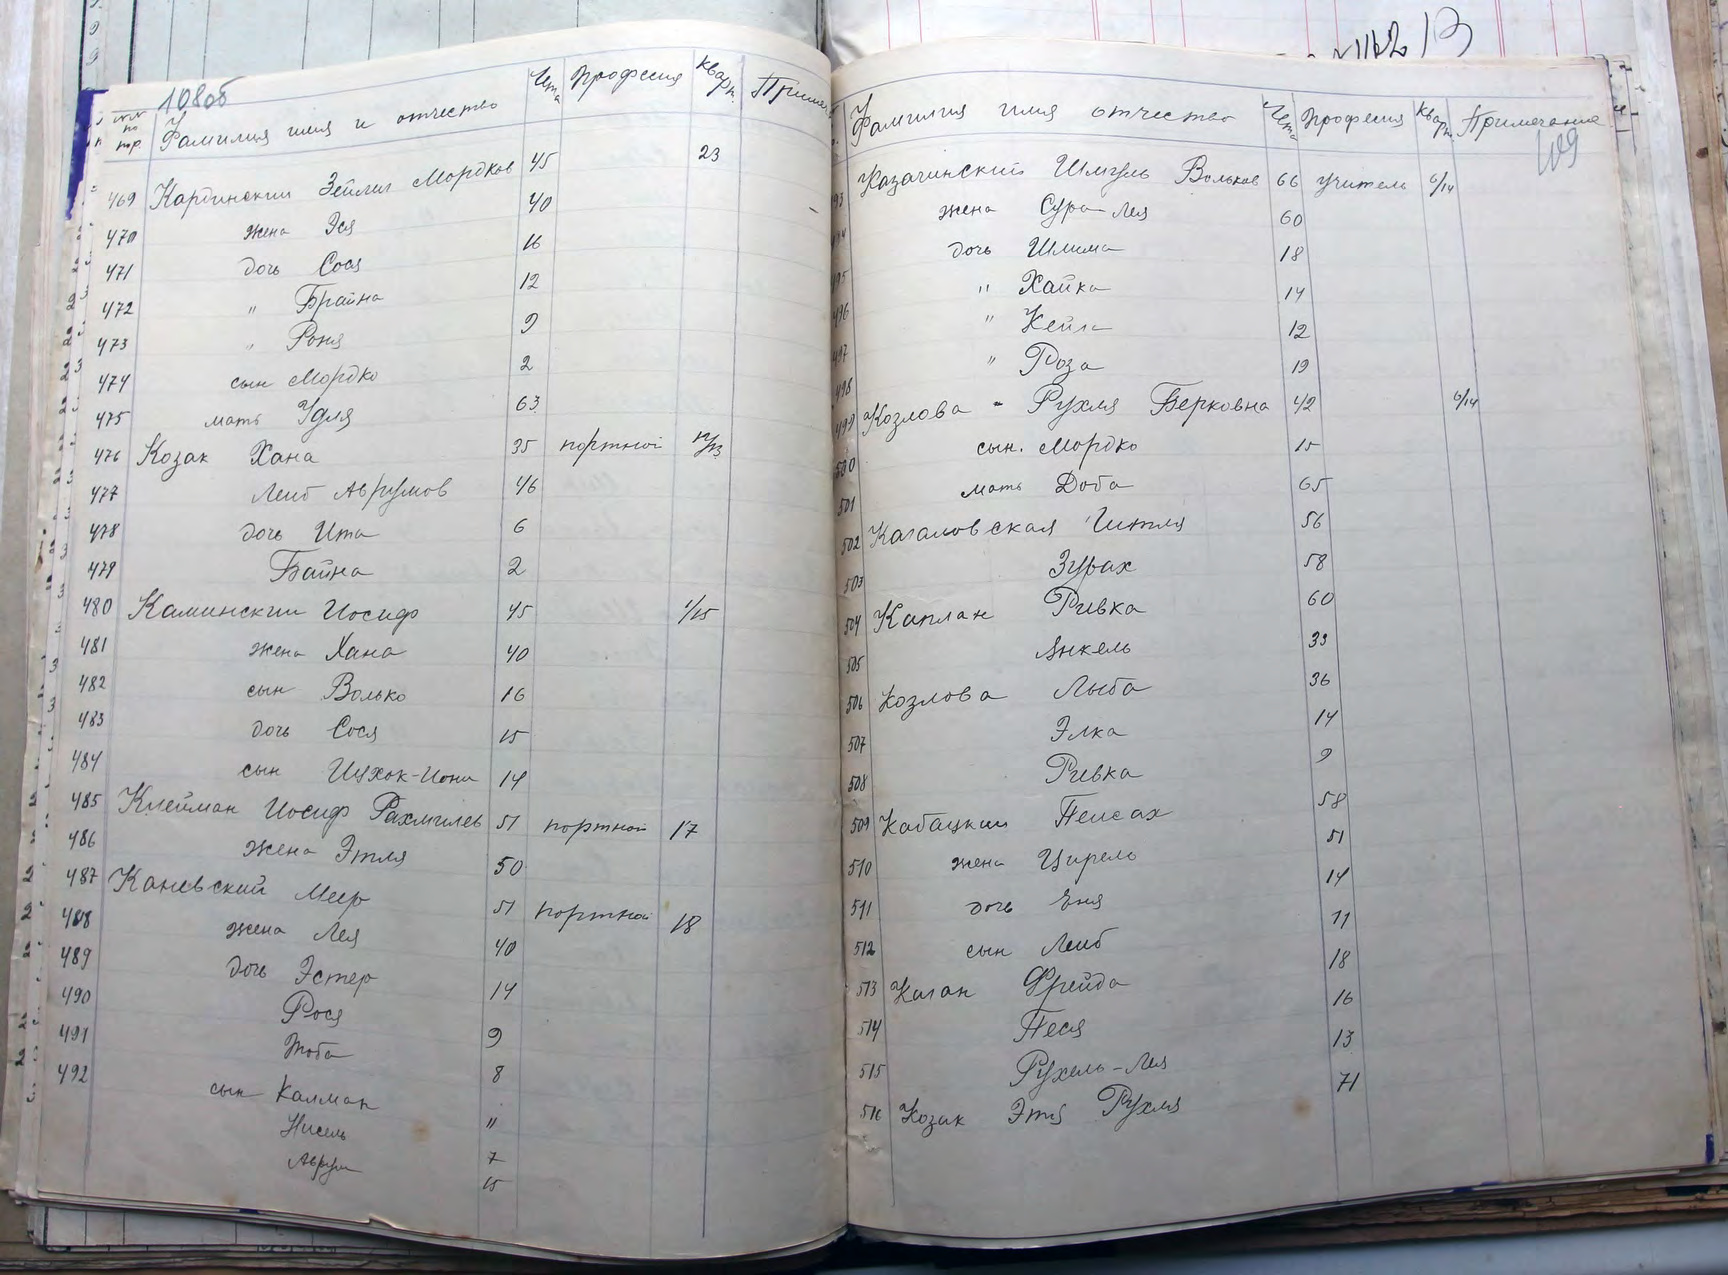 108об
№№ по пор. Фамилия имя и отчество Лета Професия Кварт. Примеч
469 Карбинский Зейлих Мордков 45 23
470 жена Эся 40
471 дочь Сося 16
472 " Брайна 12
473 " Роня 9
474 сын Мордко 2
475 мать Удля 63
476 Козак Хана 35 портной
477 Лейб Аврумов 46
478 дочь Ита 6
479 Байна 2
480 Каминский Иосиф 45 1/15
481 жена Хана 40
482 сын Волько 16
483 дочь Сося 15
484 сын Ицхок-Иона 14
485 Клейман Иосиф Рахмилев 51 портной 17
486 жена Этля 50
487 Каневский Меер 51 портной 18
488 жена Лея 40
489 дочь Эстер 14
490 Рося 9
491 Тоба 8
492 сын Калман "
Нисель 7
Аврум 15
Фамилия имя отчество Лета Професия Кварт. Примечание
109
93 Казачинский Шмуль Вольков 66 учитель 6/14
494 жена Сура-Лея 60
495 дочь Шлима 18
496 " Хайка 14
497 " Кейла 12
498 " Роза 19
499 Козлова - Рухля Берковна 42 6/14
500 сын. Мордко 15
501 мать Доба 65
502 Кагановская Гитля 56
503 Зурах 58
504 Каплан Ривка 60
505 Янкель 33
506 Козлова Лыба 36
507 Элка 14
508 Ривка 9
509 Кабацкий Пейсах 58
510 жена Цирель 51
511 дочь Еня 14
512 сын Лейб 11
513 Каган Фрейда 18
514 Песя 16
515 Рухель-Лея 13
516 Козак Этя Рухля 71